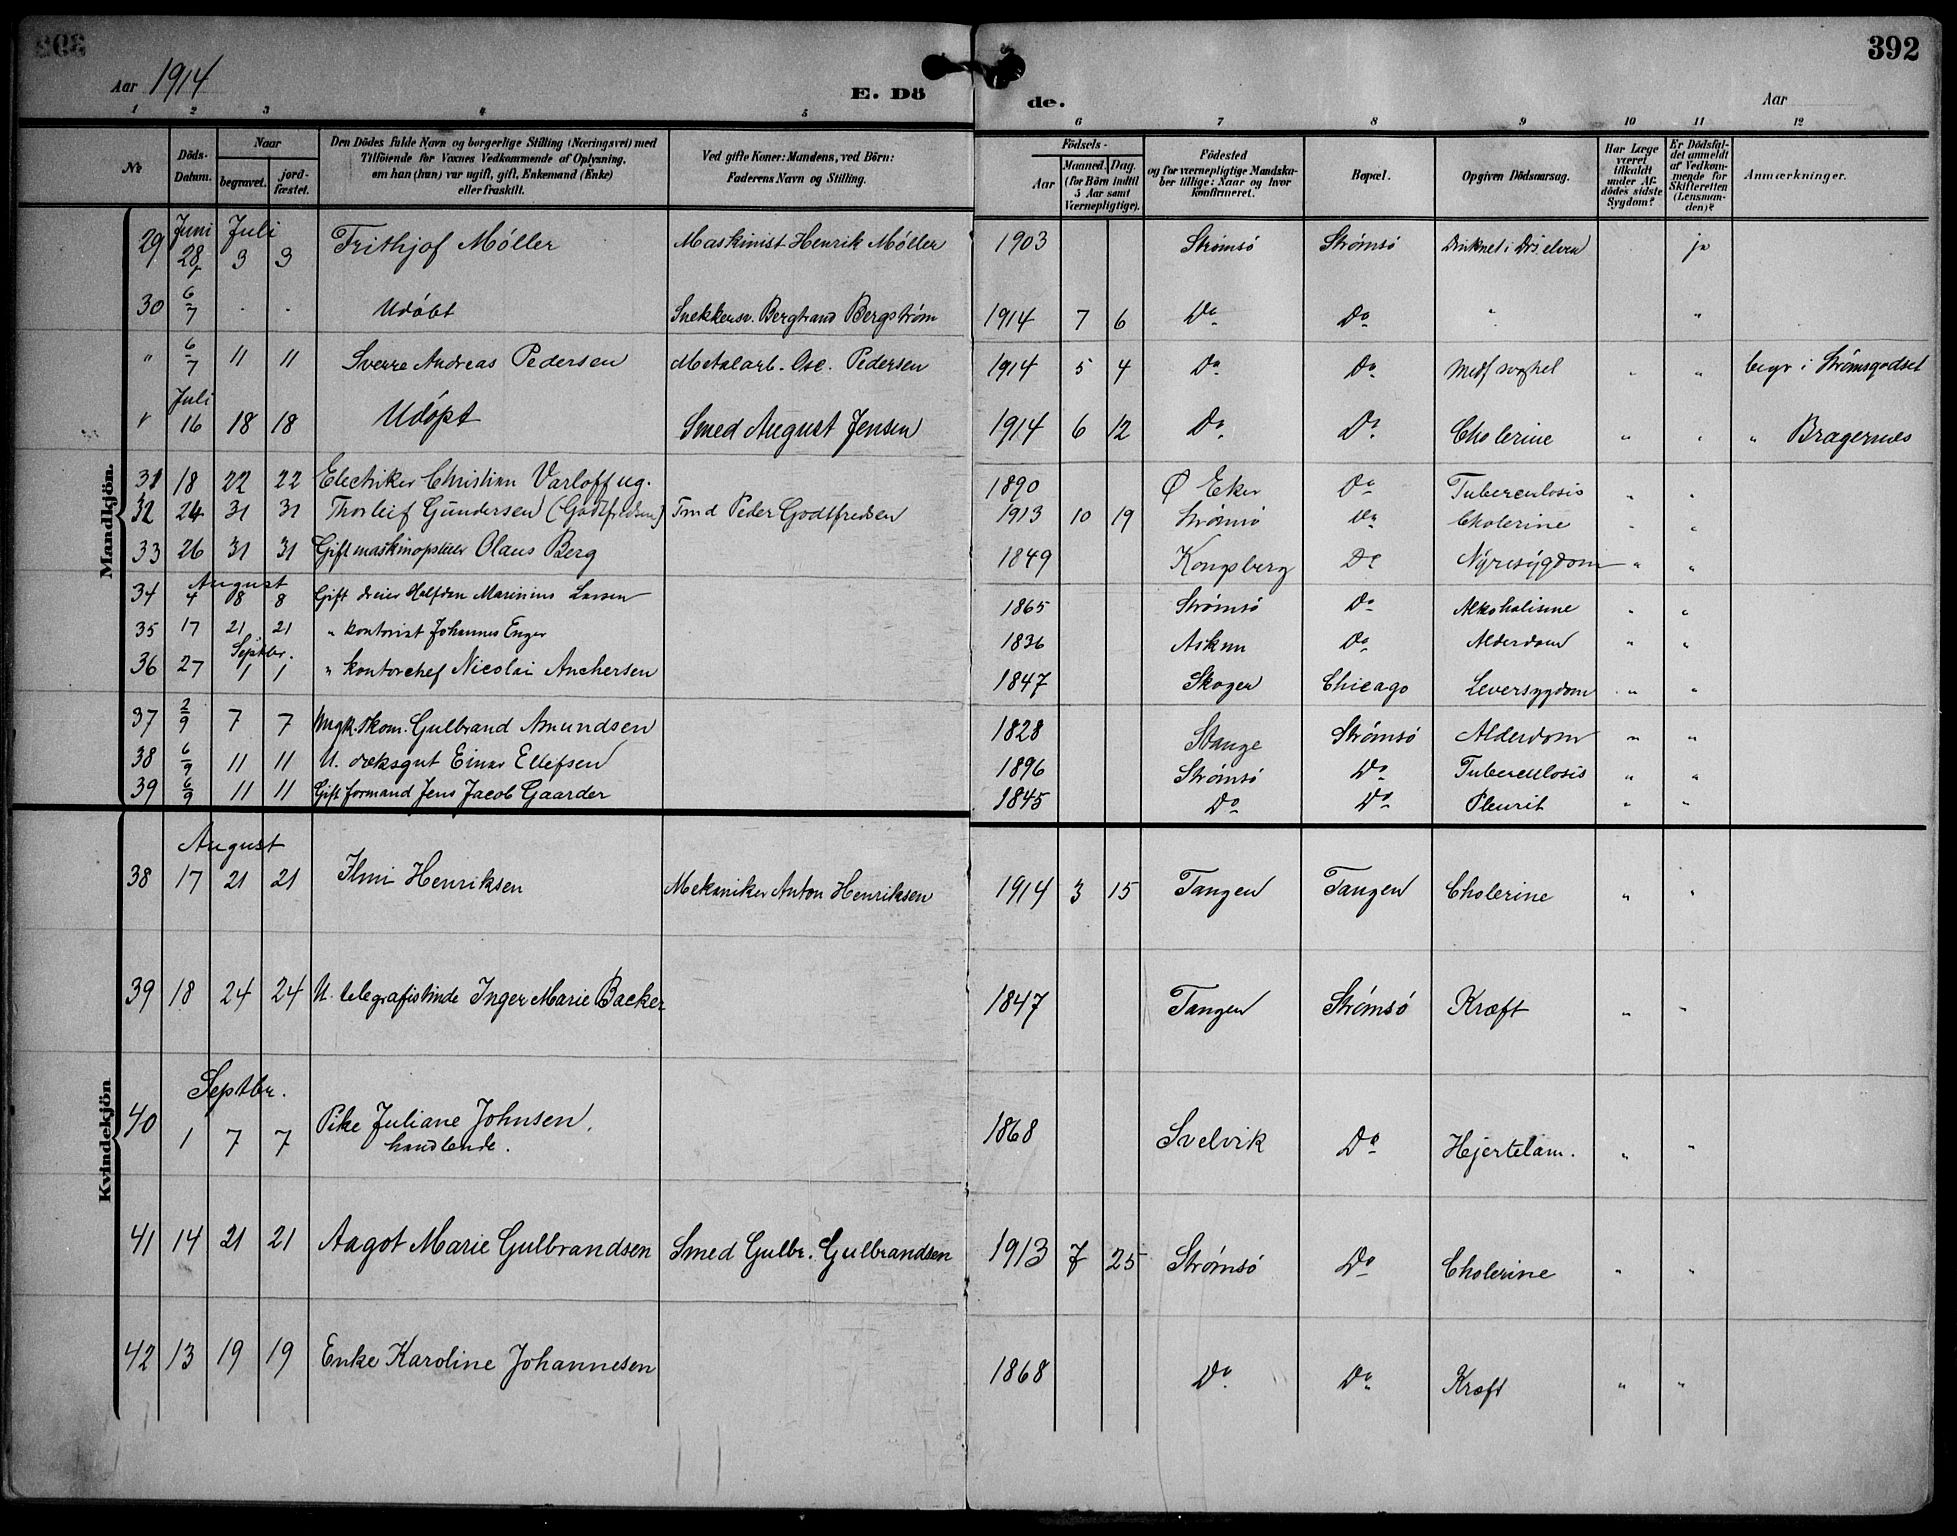 392
Aar 1914
E. Dö de.
Aar
1 2 3 4 5 6 7 8 9 10 11 12
No
Döds-Datum.
Naar
begravet.
jord-fæstet.
Den Dödes fulde Navn og borgerlige Stilling (Næringsvei) med
Tilföiende for Voxnes Vedkommende af Oplysning,
om han (hun) var ugift, gift, Enkemand (Enke)
eller fraskilt.
Ved gifte Koner: Mandens, ved Börn:
Faderens Navn og Stilling.
Födsels-
Aar
Maaned. Dag.
(for Börn indtil
5 Aar samt
Værnepligtige).
Födested
og for værnepligtige Mandska-
ber tillige: Naar og hvor
konfirmeret.
Bopæl.
Opgiven Dödsaarsag.
Har Læge
været
tilkaldt
under Af-
dödes sidste
Sygdom?
Er Dödsfal-
det anmeldt
af Vedkom-
mende for
Skifteretten
(Lensman-
den)?
Anmærkninger.
Mandkjön.
Juni Juli
29 28 3 3 Frithjof Møller Maskinist Henrik Møller 1903 Strømsø Strømsø Druknet i Drs. elven ja
30 6/7 . . Udøbt Snekkersv. Bergtrand Bergstrøm 1914 7 6 Do Do " "
" 6/7 11 11 Sverre Andreas Pedersen Metalarb. Osc. Pedersen 1914 5 4 Do Do Medf svaghet " " begr i Strømsgodset
Juli
" 16 18 18 Udøpt Smed August Jensen 1914 6 12 Do Do Cholerine " " " Bragernes
31 18 22 22 Electriker Christian Varloff ug. 1890 Ø Eker Do Tuberculosis " "
32 24 31 31 Thorleif Gundersen (Godtfredsen) Frmd Peder Godtfredsen 1913 10 19 Strømsø Do Cholerine " "
33 26 31 31 Gift Olaus Berg 1849 Kongsberg Do Nyresygdom " "
August
34 4 8 8 Gift dreier Halfdan Marinius Larsen 1865 Strømsø Do " "
35 17 21 21 " kontorist Johannes Enger 1836 Askim Do Alderdom " "
Septbr.
36 27 1 1 " kontorchef Nicolai Anchersen 1847 Skoger Chicago Leversygdom " "
37 2/9 7 7 Gulbrand Amundsen 1828 Stange Strømsø Alderdom " "
38 6/9 11 11 U. dæksgut Einar Ellefsen 1896 Strømsø Do Tuberculosis " "
39 6/9 11 11 Gift formand Jens Jacob Gaarder 1845 Do Do Pleurit " "
Kvindekjön
August
38 17 21 21 Henriksen Mekaniker Anton Henriksen 1914 3 15 Tangen Tangen Cholerine " "
39 18 24 24 U. telegrafistinde Inger Marie Backer 1847 Tangen Strømsø Kræft " "
Septbr.
40 1 7 7 Pike Juliane Johnsen, 1868 Svelvik Do Hjertelam. " "
handlende.
41 14 21 21 Aagot Marie Gulbrandsen Smed Gulbr. Gulbrandsen 1913 7 25 Strømsø Do Cholerine " "
42 13 19 19 Enke Karoline Johannesen 1868 Do Do Kræft " "